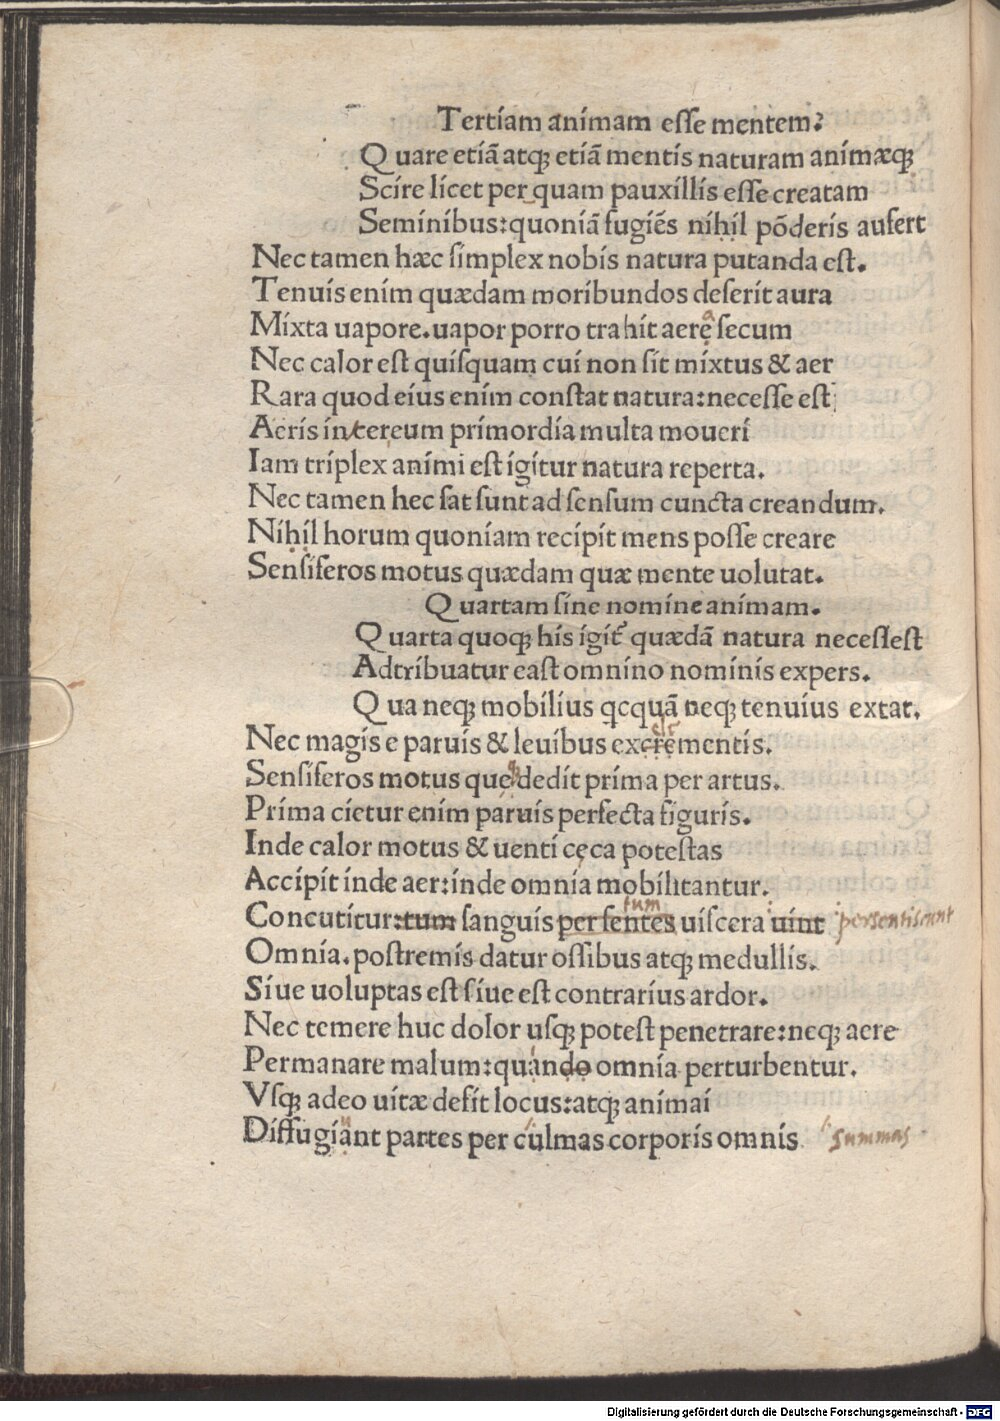 Tertiam animam esse mentem?
Q uare etiā atq; etiā mentis naturam animæq;
Scire licet per quam pauxillis esse creatam
Seminibus:quoniā fugiēs nihil pōderis aufert
Nec tamen hæc simplex nobis natura putanda est.
Tenuis enim quædam moribundos deserit aura
Mixta uapore.uapor porro trahit aere secum
a
Nec calor est quisquam cui non sit mixtus & aer
Rara quod eius enim constat natura:necesse est
Aeris in/cereum primordia multa moueri
Iam triplex animi est igitur natura reperta.
Nec tamen hec sat sunt ad sensum cuncta creandum.
Nihil horum quoniam recipit mens posse creare
Sensiferos motus quædam quæ mente uolutat.
Q uartam sine nomine animam.
Q uarta quoq; his igit᷑ quædā natura necessest
Adtribuatur east omnino nominis expers.
Q ua neq; mobilius qcquā neq; tenuius extat.
Nec magis e paruis & leuibus excrementis.
Sensiferos motus que dedit prima per artus.
Prima cietur enim paruis perfecta figuris.
Inde calor motus & uenti cęca potestas
Accipit inde aer:inde omnia mobilitantur.
Concutitur:tum sanguis persentes uiscera uint persentiscunt
tum
Omnia.postremis datur ossibus atq; medullis.
Siue uoluptas est siue est contrarius ardor.
Nec temere huc dolor usq; potest penetrare:neq; aere
Permanare malum:quando omnia perturbentur.
Vsq; adeo uitæ desit locus:atq; animai
Diffugiant partes per culmas corporis omnis summas
Digitalisierung gefördert durch die Deutsche Forschungsgemeinschaft - DFG